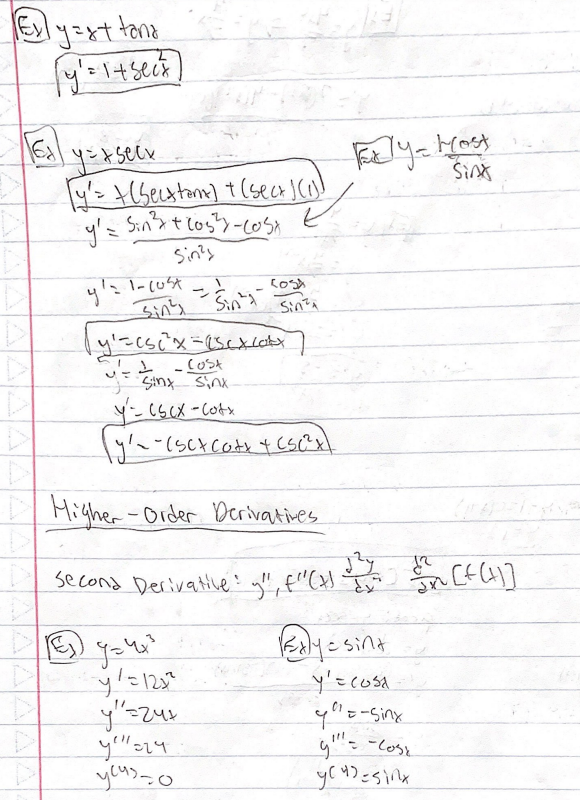 Ex y=x+tanx
y'=1+sec²x
Ex y=xsecx
y'=x(secxtanx)+(secx)(1)
Ex y=1-cosx/sinx
y'=sin²x+cos²x-cosx/sin²x
y'=1-cosx/sin²x=1/sin²x-cosx/sin²x
y'=csc²x-cscxcotx
y'=1/sinx-cosx/sinx
y'=cscx-cotx
y'=-cscxcotx+csc²x
Higher-Order Derivatives
Second Derivative: y'', f''(x) d²y/dx² d²/dx²[f(x)]
Ex y=4x³
y'=12x²
y''=24x
y'''=24
y(4)=0
Ex y=sinx
y'=cosx
y''=-sinx
y'''=-cosx
y(4)=sinx